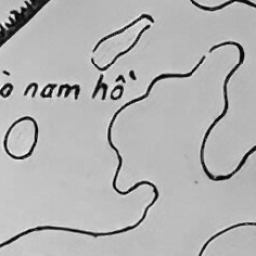 ò nam hồ